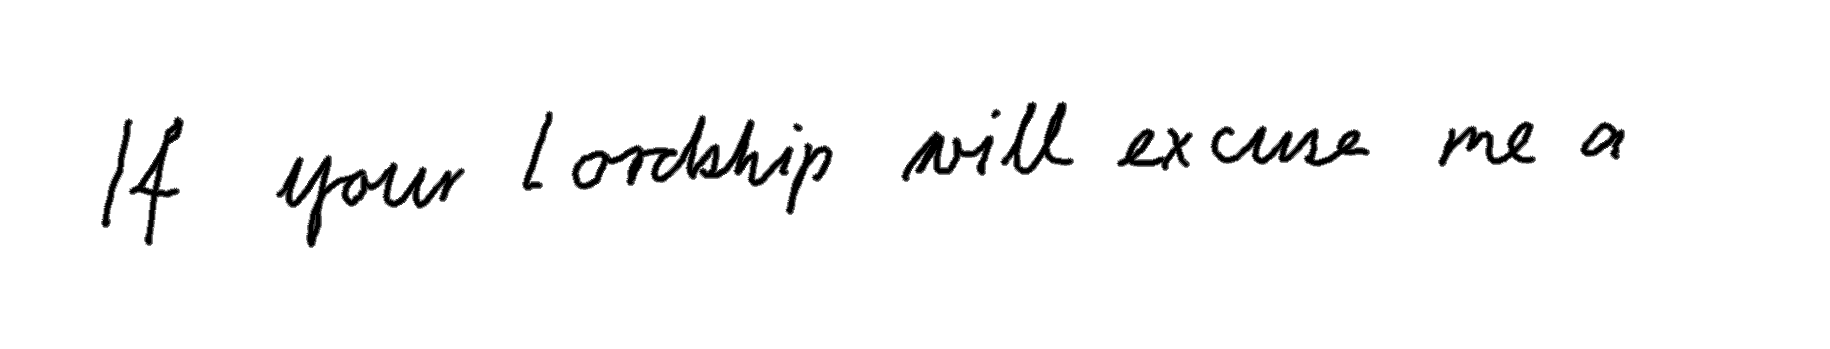 If your Lordship will excuse me a